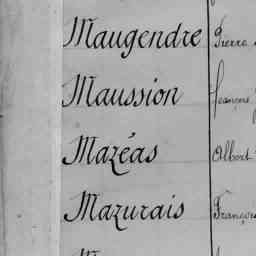 Maugendre Pierre
Maussion
Mazéas Albert
Mazurais François